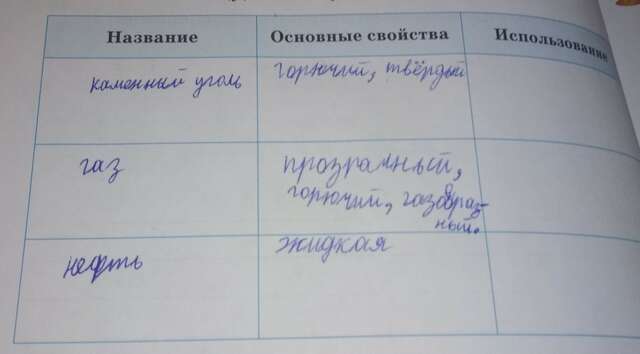 Название Основные свойства Использование
каменный уголь горючий, твёрдый
газ прозрачный,
горючий, газообраз-
ный.
нефть жидкая